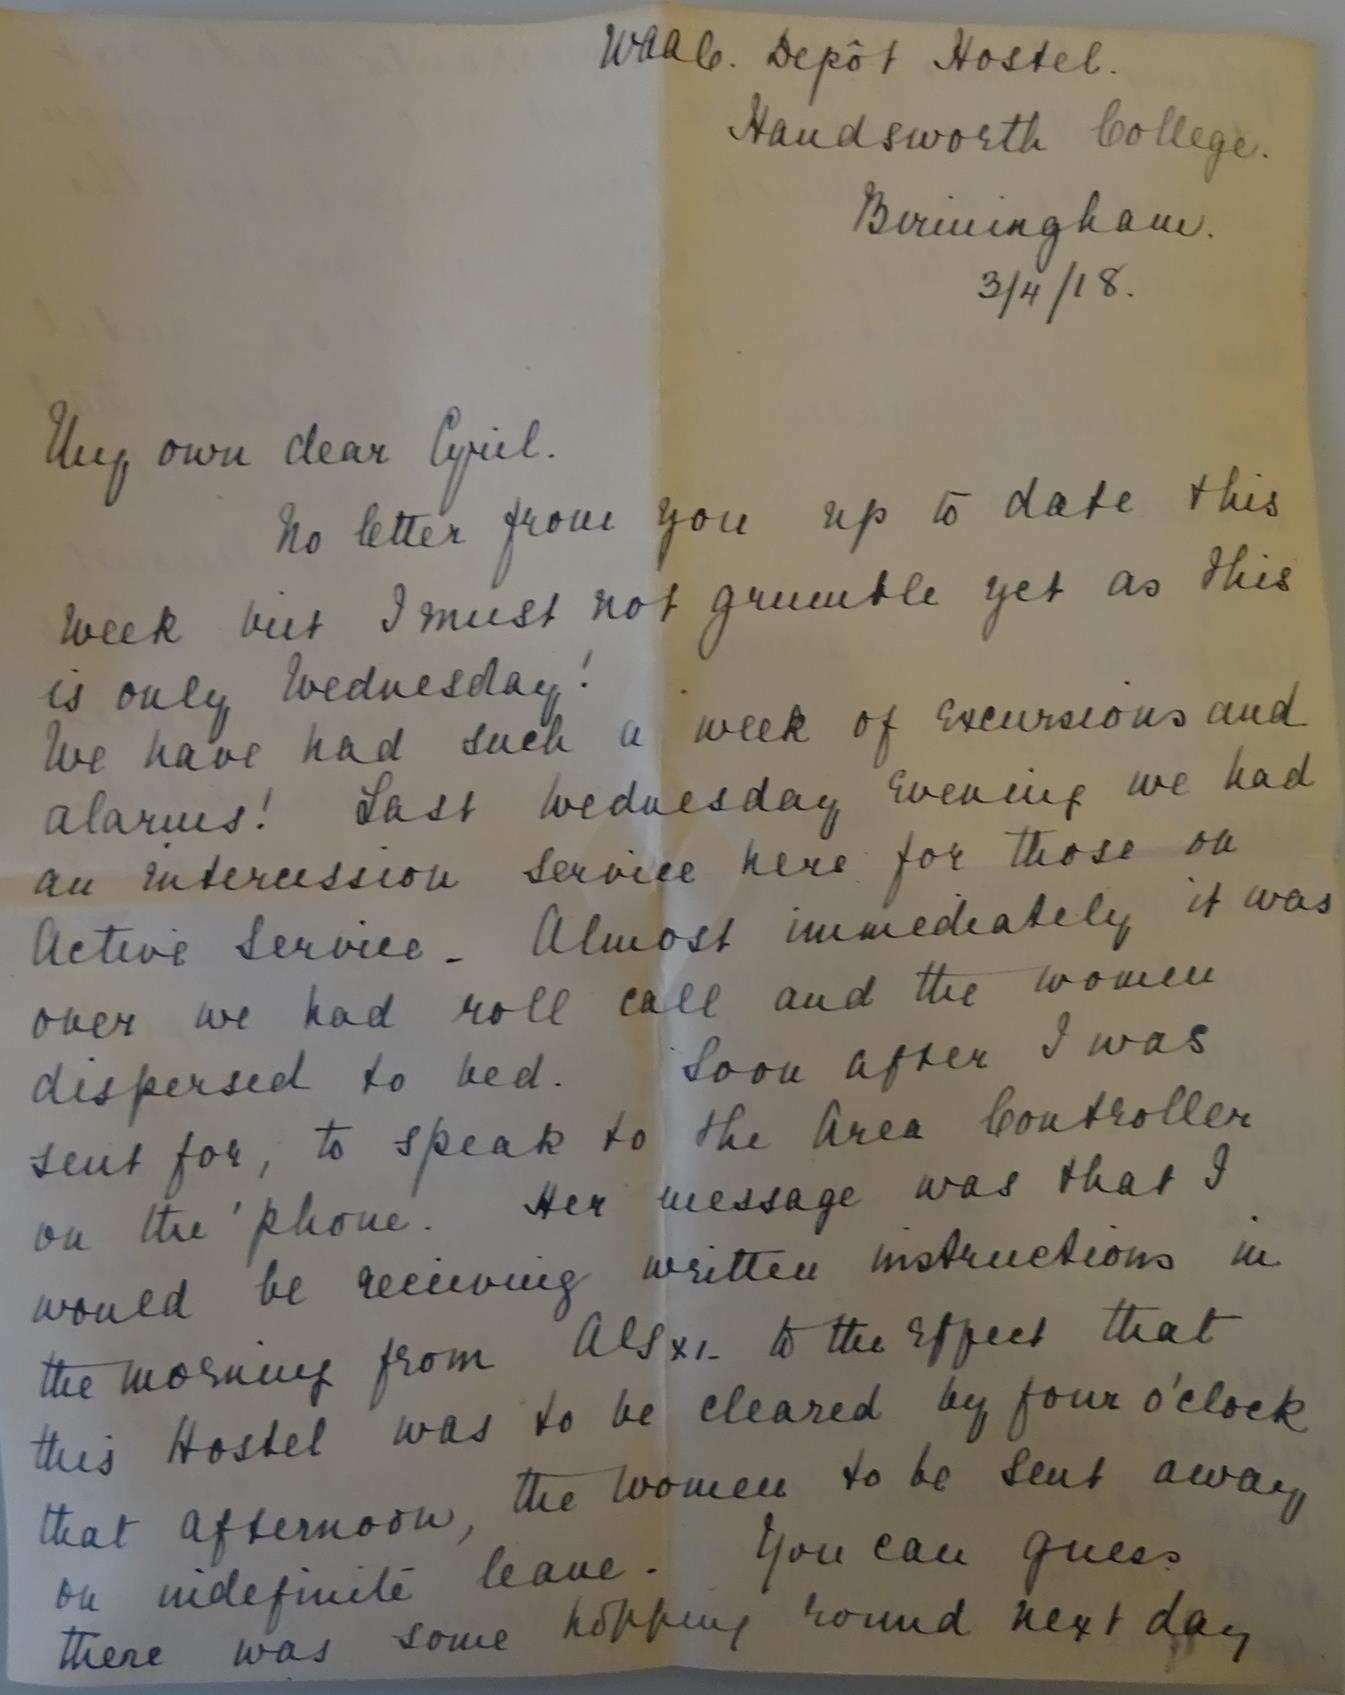 WAAC. Depôt Hostel.
Handsworth College.
Birmingham.
3/4/18.
My own dear Cyril.
No letter from you up to date this
week but I must not grumble yet as this
is only Wednesday!
We have had such a week of excursions and
alarms! Last Wednesday evening we had
an intercession service here for those on
Active Service - Almost immediately it was
over we had roll call and the women
dispersed to bed. Soon after I was
sent for, to speak to the Area Controller
on the 'phone. Her message was that I
would be recieving written instructions in
the morning from to the effect that
this Hostel was to be cleared by four o'clock
that afternoon, the women to be sent away
on indefinite leave. You can guess
there was some hopping round next day